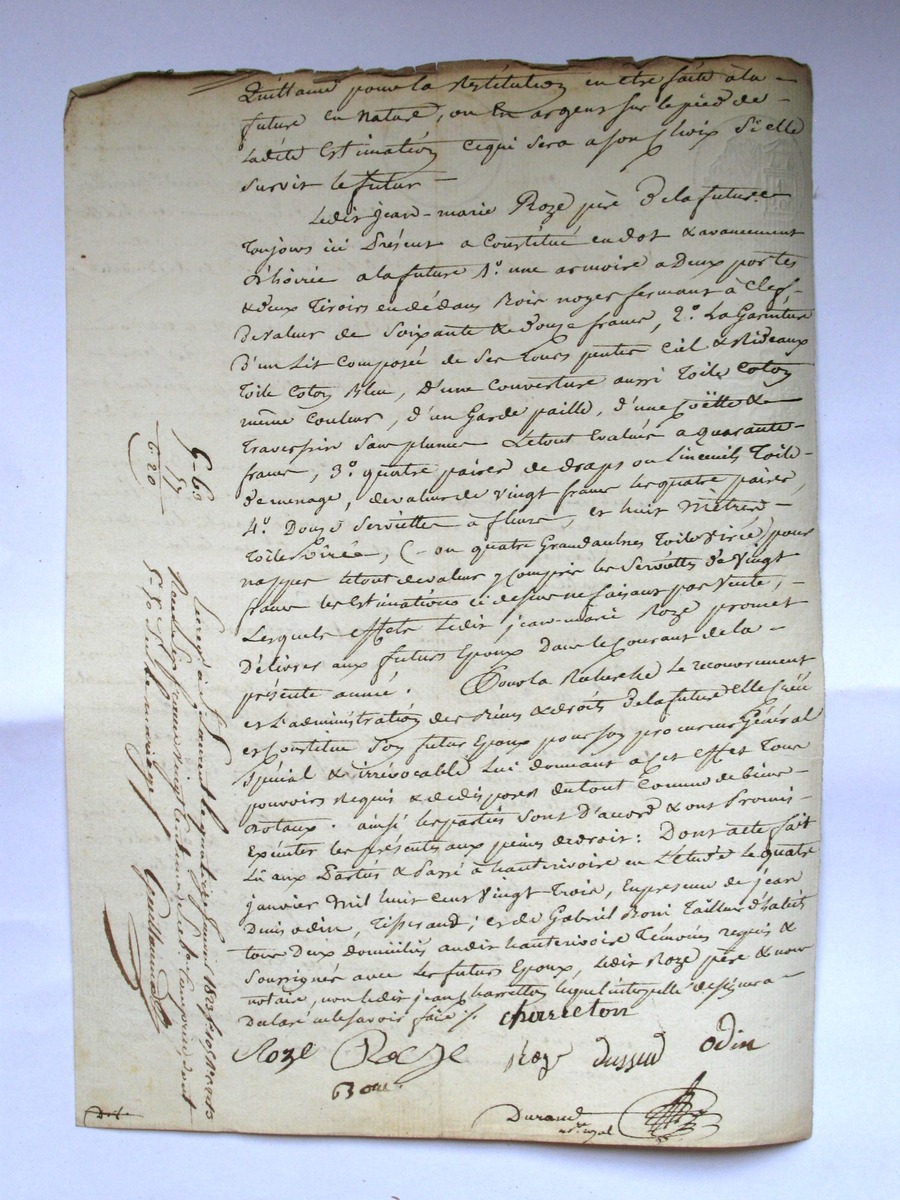 Quittance pour la Restitution en être faite à la
future en Nature, ou En argent sur le pied de
Ladite Estimation Cequi sera a son Choix Si elle
survit le futur
Ledit Jean-marie Roze père de la future
Toujours ici Présent a Constitué en dot & avancement
d'hoirie a la future 1.º une armoire a Deux portes
& deux Tiroirs en dedans Bois noyer fermant à Clef
de valeur de Soixante & douze francs, 2.º La Garniture
D'un Lit Composée de Ses tours pentes Ciel & Rideaux
Toile Coton Bleu, D'une Couverture aussi Toile Coton
même Couleur, d'un Garde paille, d'une Coëtte &
Traversin Sans plumes Letout Evalué a quarante
francs, 3.º quatre paires de draps ou Linceuils Toile
de menage, de valeur de vingt francs les quatre paires,
4.º Douze Serviettes à fleurs, et huit mètres
Toile Cirée, (ou quatre Grand aulnes Toile Cirée) pour
nappes letout de valeur y Compris les Serviettes de Vingt
francs les Estimations ci dessus ne faisant pas Vente,
Lesquels effets Ledit jean-marie Roze promet
Délivrer aux futurs Epoux Dans le Courant de la
présente année. Pour la Recherche Le recouvrement
et L'administration des Biens & droits de la future Elle Créé
et Constitue Son futur Epoux pour Son procureur Général
Spécial & irrévocable Lui donnant à Cet Effet Tous
pouvoirs Requis & de disposer du tout Comme de biens
dotaux. ainsi les parties Sont D'accord & ont Promis
Exécuter les présentes aux peines de droit: Dont acte fait
Lû aux Parties & Passé à hauterivoire en L'etude Le quatre
janvier Mil huit cent Vingt Trois, En présence de jean
Denis odin, Tisserand; et de Gabriel Boni Tailleur d'habits
tous Deux domiciliés audit hauterivoire Témoins requis &
Soussignés avec Les futurs Epoux, Ledit Roze père & nous
notaire, non Ledit jean Charretton lequel interpellé de signer a
Declaré ne le savoir faire /. charreton
Roze Roze Roze dussud odin
Boni
Durand
n.re royal
5-63
57
6-20
Enregé à St Laurent le quatorze Janvier 1823 f.º
Reçu Six francs vingt Centimes, Dont
5-50 p. le mariage
Guillaumot